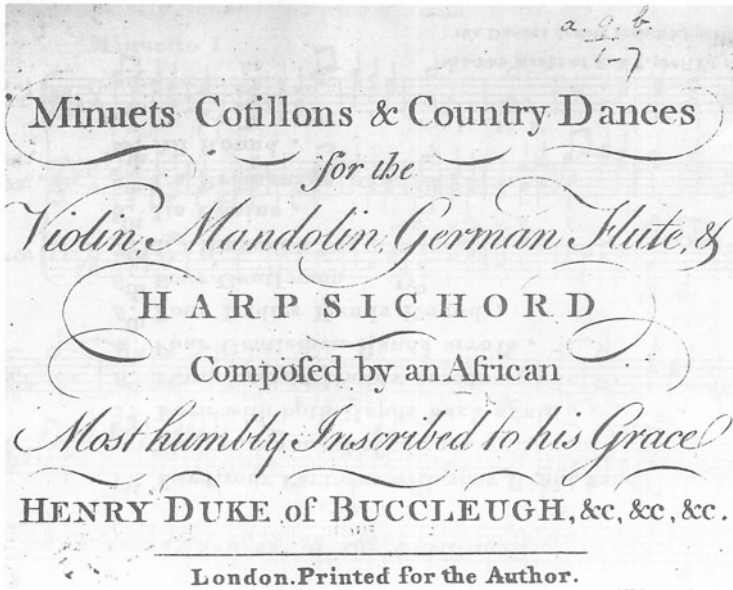 a 9 b
1-7
Minuets Cotillons & Country Dances
for the
Violin, Mandolin, German Flute, &
HARPSICHORD
Compoſed by an African
Most humbly Inscribed to his Grace
HENRY DUKE of BUCCLEUGH, &c, &c, &c.
London. Printed for the Author.